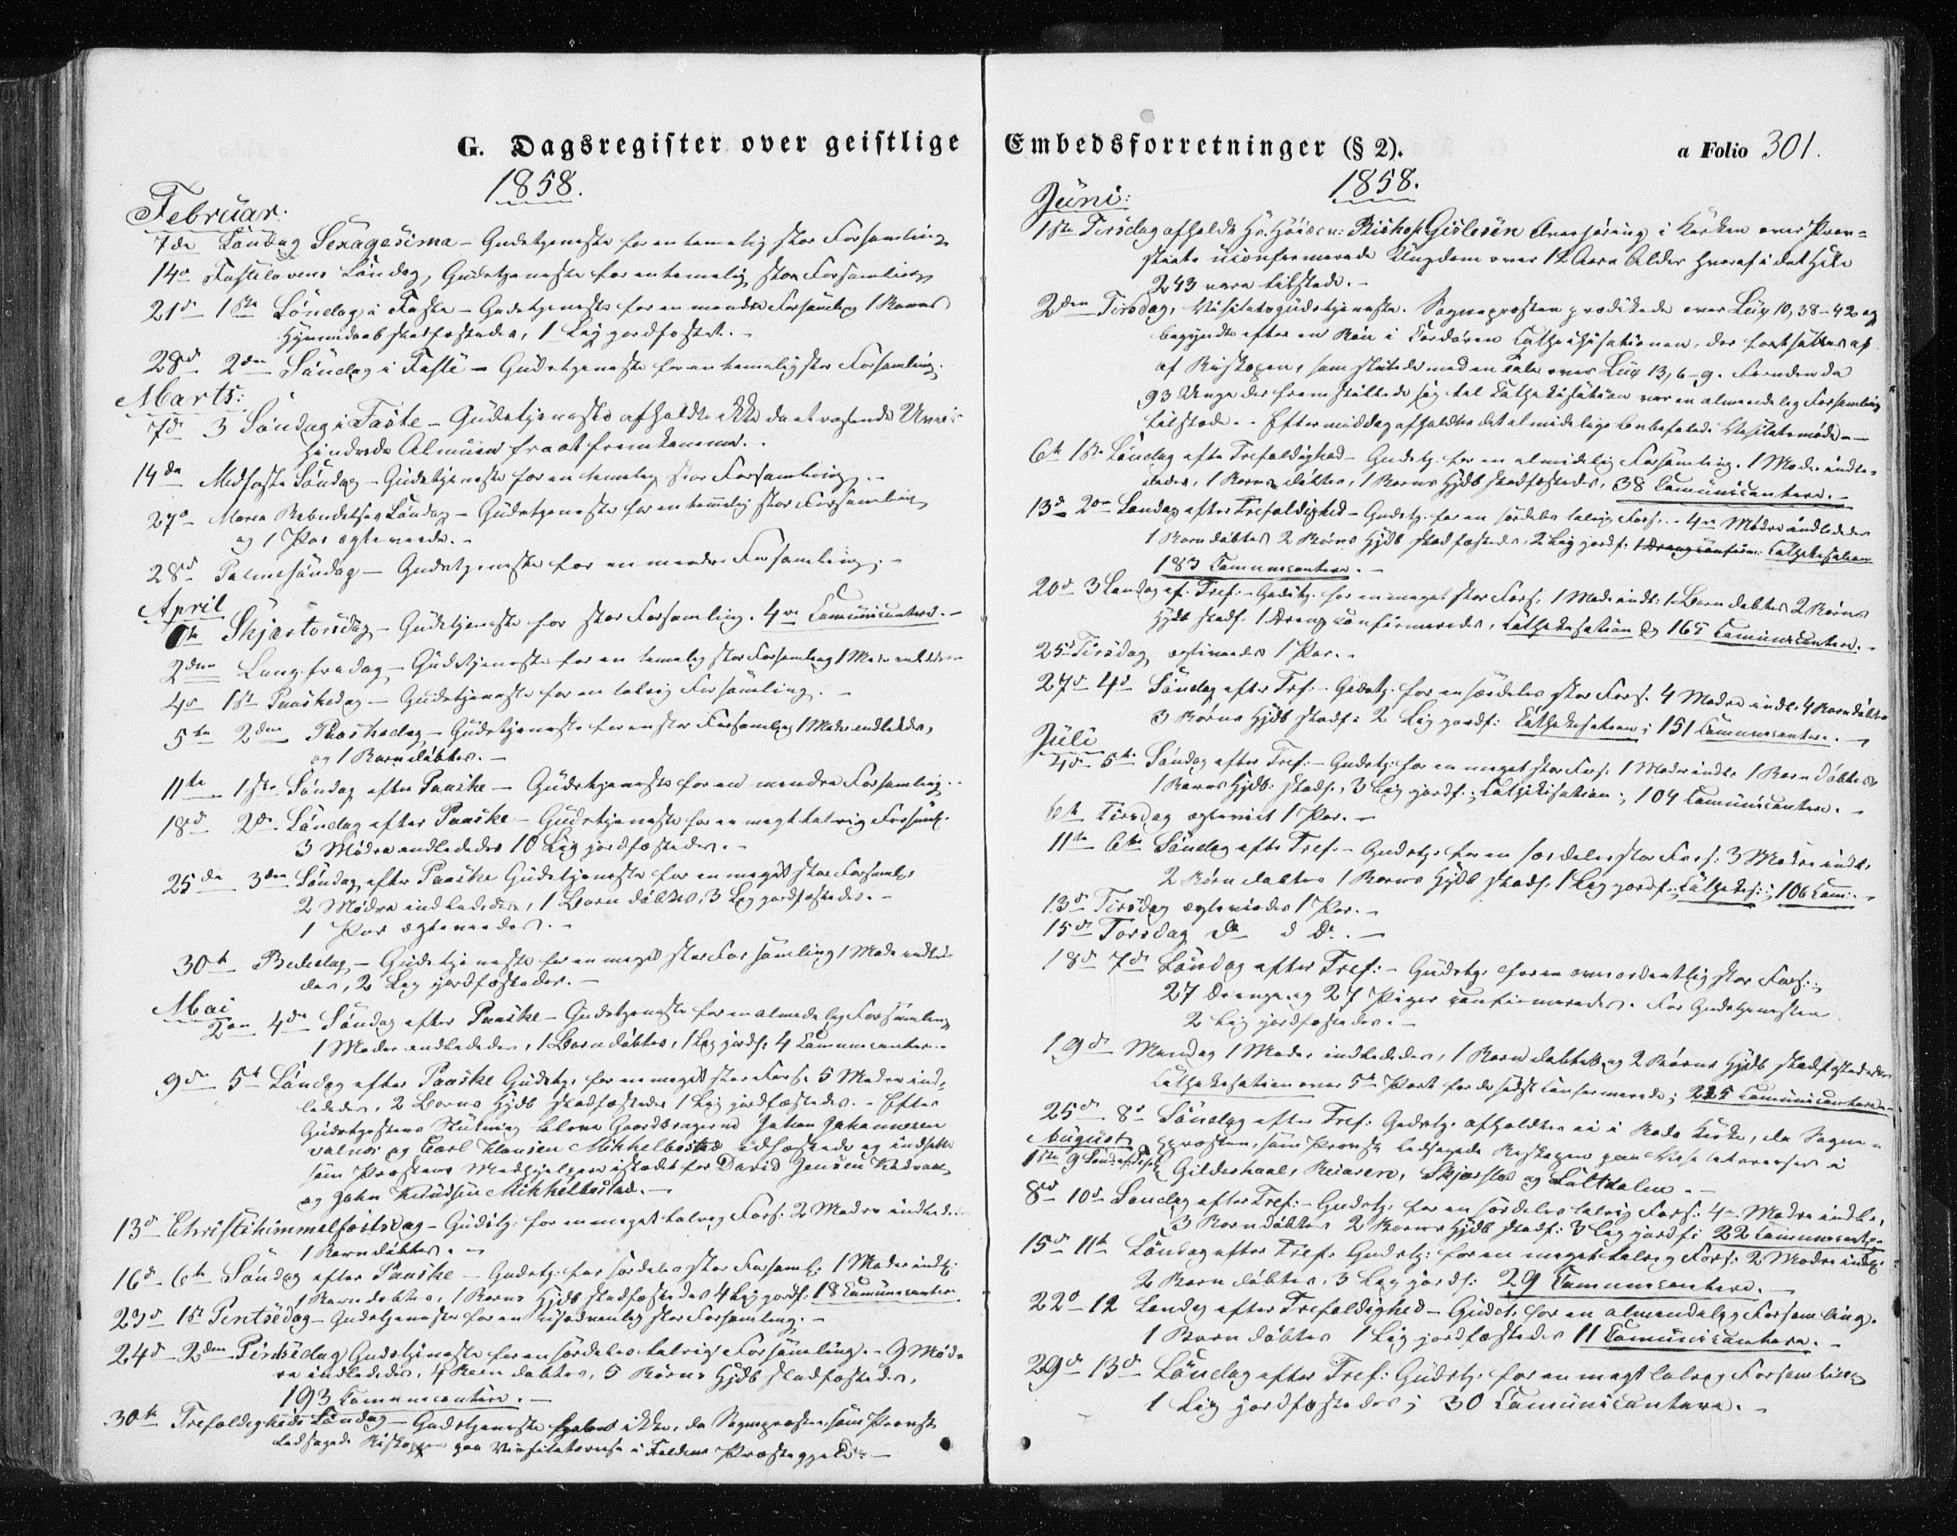 G. Dagsregister over geistlige
1858.
Februar:
7de Söndag Sexagesima – Gudstjeneste for en temelig stor Forsamling
14de Fastelavens Söndag, Gudstjeneste for en temelig stor Forsamling
21de 1ste Söndag i Faste – Gudstjeneste for en mindre Forsamling 1 Barns
Hjemmedaab stadfæstedes, 1 Lig jordfæstet. –
28de 2den Söndag i Faste – Gudstjeneste for en temelig stor Forsamling.
Marts:
7de 3 Söndag i Faste – Gudstjeneste afholdtes ikke da et rasende Uveir
hindrede Almuen fra at fremkomme. –
14de Midfaste Söndag – Gudstjeneste for en temelig stor Forsamling. –
27de Maria Bebudelses Söndag – Gudstjeneste for en temmelig stor Forsamling
og 1 Par ægteviede. –
28de Palmesöndag – Gudstjeneste for en mindre Forsamling. –
April
1ste Skjærtorsdag – Gudstjeneste for stor Forsamling. 4re Comunicantere. –
2den Langfredag – Gudstjeneste for en temelig stor Forsamling 1 Moder indlededes
4de 1ste Paaskedag – Gudstjeneste for en talrig Forsamling. –
5te 2den Paaskedag – Gudstjeneste for en stor Forsamling 1 Moder indlededes,
og 1 Barn döbtes. –
11te 1ste Söndag efter Paaske – Gudstjeneste for en mindre Forsamling. –
18de 2den Söndag efter Paaske – Gudstjeneste for en meget talrig Forsaml.
3 Mødre indlededes 10 Lig jordfæstedes. –
25de 3die Söndag efter Paaske Gudstjeneste for en meget stor Forsaml.
2 Mødre indlededes, 1 Barn döbtes, 3 Lig jordfæstedes. –
1 Par ægteviedes. –
30te Bededag – Gudstjeneste for en meget stor Forsamling 1 Moder indlede-
des, 2 Lig jordfæstedes. –
Mai
2den 4de Söndag efter Paaske – Gudstjeneste for en almindelig Forsamling
1 Moder indlededes, 1 Barn döbtes, 1 Lig jordf. 4 Communicanter. –
9de 5te Söndag efter Paaske Gudstj. for en meget stor Fors. 5 Mødre ind-
lededes, 2 Børns Hjdb stadfæstedes 1 Lig jordfæstedes. – Efter
Gudstjenestens Slutning bleve Gaardbrugerne Johan Johannesen
og Carl Hansen Mikkelbostad edfæstede og indsatte
som Præstens Medhjelpere istedet for David Jensen
og John Knudsen Mikkelbostad. –
13de Christihimmelfartsdag – Gudstj. for en meget talrig Fors. 2 Mødre indled.
1 Barn döbtes. –
16de 6te Söndag efter Paaske – Gudstj. for særdeles stor Forsaml. 1 Moder indl.
1 Barn döbtes, 1 Barns Hjdb stadfæstedes 4 Lig jordf. 18 Comunicanter.
23de 1ste Pintsedag – Gudstjeneste for en usædvanlig stor Forsamling. –
24de 2den Pintsedag Gudstjeneste for en særdeles talrig Forsamling. – 9 Mød-
re indlededes, 4 Børn döbtes, 5 Børns Hjdb stadfæstedes,
193 Comunicantere. –
30te Trefoldigheds Söndag – Gudstjeneste ikke, da Sognepræsten som Provst
ledsagede Biskoppen paa Visitatsreise i Præstegjeld. –
Embedsforretninger (§ 2).
a Folio 301.
1858.
Juni:
1ste Tirsdag afholdt Hr. Biskop Gislesen Overhøring i Kirken over Præ-
uconfirmerede Ungdom over 12 Aars Alder hvoraf i det Hele
243 vare tilstede. –
2den Visitatsgudstjeneste. Sognepræsten prædikede over Luc 10, 38–42 og
begyndte efter en Bøn i Kordøren Cathechisationen, der fortsattes af
af Biskopen, som sluttede med en Tale over Luc 13, 6–9. Foruden de
93 Unge der fremstillede sig til Cathechisation var en almindelig Forsamling
tilstede. – Eftermiddag afholdtes det almindelige anbefalede Visitatsmøde. –
6te 1ste Söndag efter Trefoldighed – Gudstj. for en almindelig Forsamling. 1 Moder indle-
dedes, 1 Barn döbtes, 1 Barns Hjdb stadfæstedes, 38 Comunicantere. –
13de 2den Söndag efter Trefoldighed – Gudstj. for en særdeles talrig Fors. – 4re Mødre indlededes
1 Barn döbtes 2 Børns Hjdb stadfæstedes, 2 Lig jordf. Cathekisation
183 Comunicantere. –
20de 3 Söndag ef. Tref. – Gudstj. for en meget stor Fors. 1 Moder indl. 1 Barn döbtes 2 Børns
Hjdb stadf. 1 Dreng confirmeredes, Cathekisation og 165 Comunicantere. –
25de Tirsdag ægteviedes 1 Par. –
27de 4de Söndag efter Trf. – Gudstj. for en særdeles stor Fors. 4 Mødre indl. 4 Børn döbtes
3 Børns Hjdb stadf. 2 Lig jordf. Cathekisation; 151 Comunicantere. –
Juli
4de 5te Söndag efter Tref. – Gudstj. for en meget stor Fors. 1 Moder indl. 1 Barn döbtes
1 Barns Hjdb. stadf. 3 Lig jordf.; Cathekisation; 104 Comunicantere. –
6te Tirsdag ægteviet 1 Par. –
11te 6te Söndag efter Tref. – Gudstj. for en særdeles stor Fors. 3 Mødre indl.
2 Børn döbtes 1 Barns Hjdb stadf. 1 Lig jordf. Cathekis.; 106 Com. –
13de Tirsdag ægteviedes 1 Par. –
15de Torsdag do do. –
18de 7de Söndag efter Tref. – Gudstj. for en overordentlig stor Fors.;
27 Drenge og 27 Piger confirmeredes. For Gudstjenesten
2 Lig jordfæstedes. –
19de Mandag 1 Moder indlededes, 1 Barn döbtes og 2 Børns Hjdb stadfæstedes
Cathekisation over 5te Part for de sidst confirmerede; 225 Comunicantere –
25de 8de Söndag efter Tref. Gudstj. afholdtes ei i Rødø Kirke, da Sogne-
August
præsten, som Provst ledsagede Biskopen paa Visitatsreise i
1ste 9 Söndag ef. Tref. Gildeskaal, Beiaren, Skjærstad og Saltdalen. –
8de 10de Söndag efter Tref. – Gudstj. for en særdeles talrig Fors. 4re Mødre indl.,
3 Børn döbtes 2 Børns Hjdb stadf. 3 Lig jordf. 22 Comunicantere
15de 11te Söndag efter Tref. Gudstj. for en meget talrig Fors. 2 Mødre indl.
2 Børn döbtes, 3 Lig jordf. 29 Comunicantere. –
22de 12 Söndag efter Trefoldighed – Gudst. for en almindelig Forsamling.
1 Barn döbtes 1 Lig jordfæstedes 11 Comunicantere. –
29de 13de Söndag efter Tref: Gudstj. for en meget talrig Forsamling
1 Lig jordfæstedes; 30 Comunicantere. –